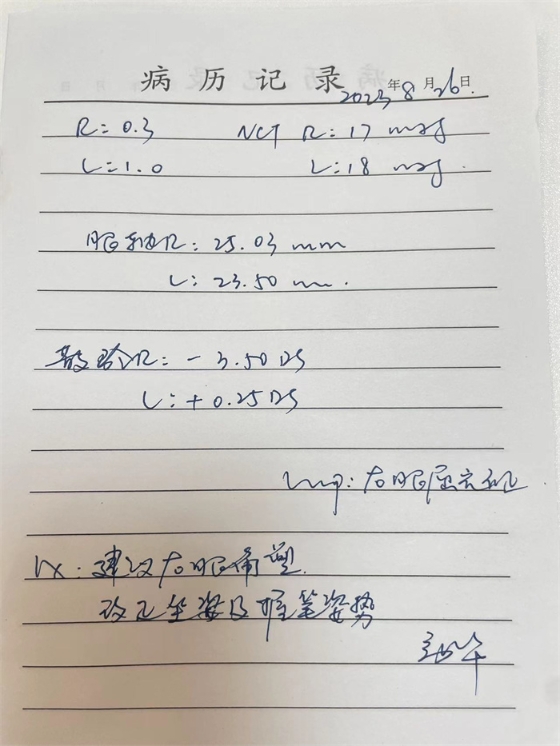 病历记录
2023年8月26日
R:0.3 NCT R:17 mmHg
L:1.0 L:18 mmHg.
眼轴R:25.03 mm
L:23.50 mm.
散瞳R:-3.50DS
L:+0.25DS
Imp:右眼屈光不正
Rx:建议右眼角塑.
改正坐姿及握笔姿势